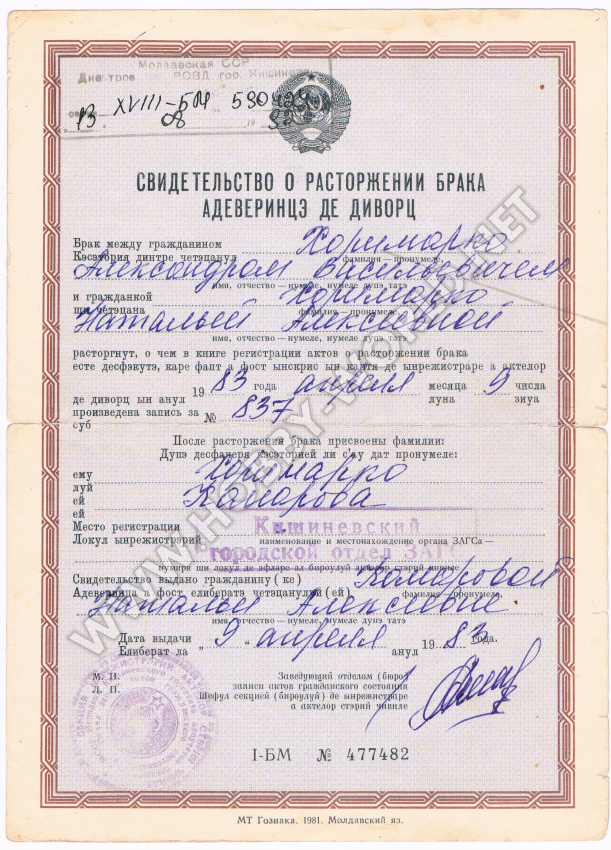 Молдавская ССР
Днестров РОВД гор. Кишинева
XVIII-БМ 590429
13 08 19
СВИДЕТЕЛЬСТВО О РАСТОРЖЕНИИ БРАКА
АДЕВЕРИНЦЭ ДЕ ДИВОРЦ
Брак между гражданином Хоримарко
Кэсэтория динтре четэцанул фамилия — пронумеле,
Александром Васильевичем
имя, отчество — нумеле, нумеле дупэ татэ
и гражданкой Хоримарко
ши четэцана фамилия — пронумеле,
Натальей Алексеевной
имя, отчество — нумеле, нумеле дупэ татэ
расторгнут, о чем в книге регистрации актов о расторжении брака
есте десфэкутэ, каре фапт а фост ынскрис ын картя де ынрежистраре а актелор
1983 года апреля месяца 9 числа
де диворц ын анул луна зиуа
произведена запись за № 837
суб
После расторжения брака присвоены фамилии:
Дупэ десфачеря кэсэторией ли с'ау дат пронумеле:
ему Хоримарко
луй
ей Комарова
ей
Место регистрации Кишиневский
Локул ынрежистрэрий наименование и местонахождение органа ЗАГСа —
городской отдел ЗАГС
нумиря ши локул де афларе ал бироулуй актелор стэрий чивиле
Свидетельство выдано гражданину (ке) Комаровой
Адеверинца а фост елибератэ четэцанулуй (ей) фамилия — пронумеле,
Наталье Алексеевне
имя, отчество — нумеле, нумеле дупэ татэ
Дата выдачи „ 9 “ апреля 1983 года.
Елиберат ла анул
М. П. Заведующий отделом (бюро)
Л. П. записи актов гражданского состояния
Шефул секцией (бироулуй) де ынрежистраре
а актелор стэрий чивиле
I-БМ № 477482
МТ Гознака. 1981. Молдавский яз.
WWW.HOBBY-WORLD.NET